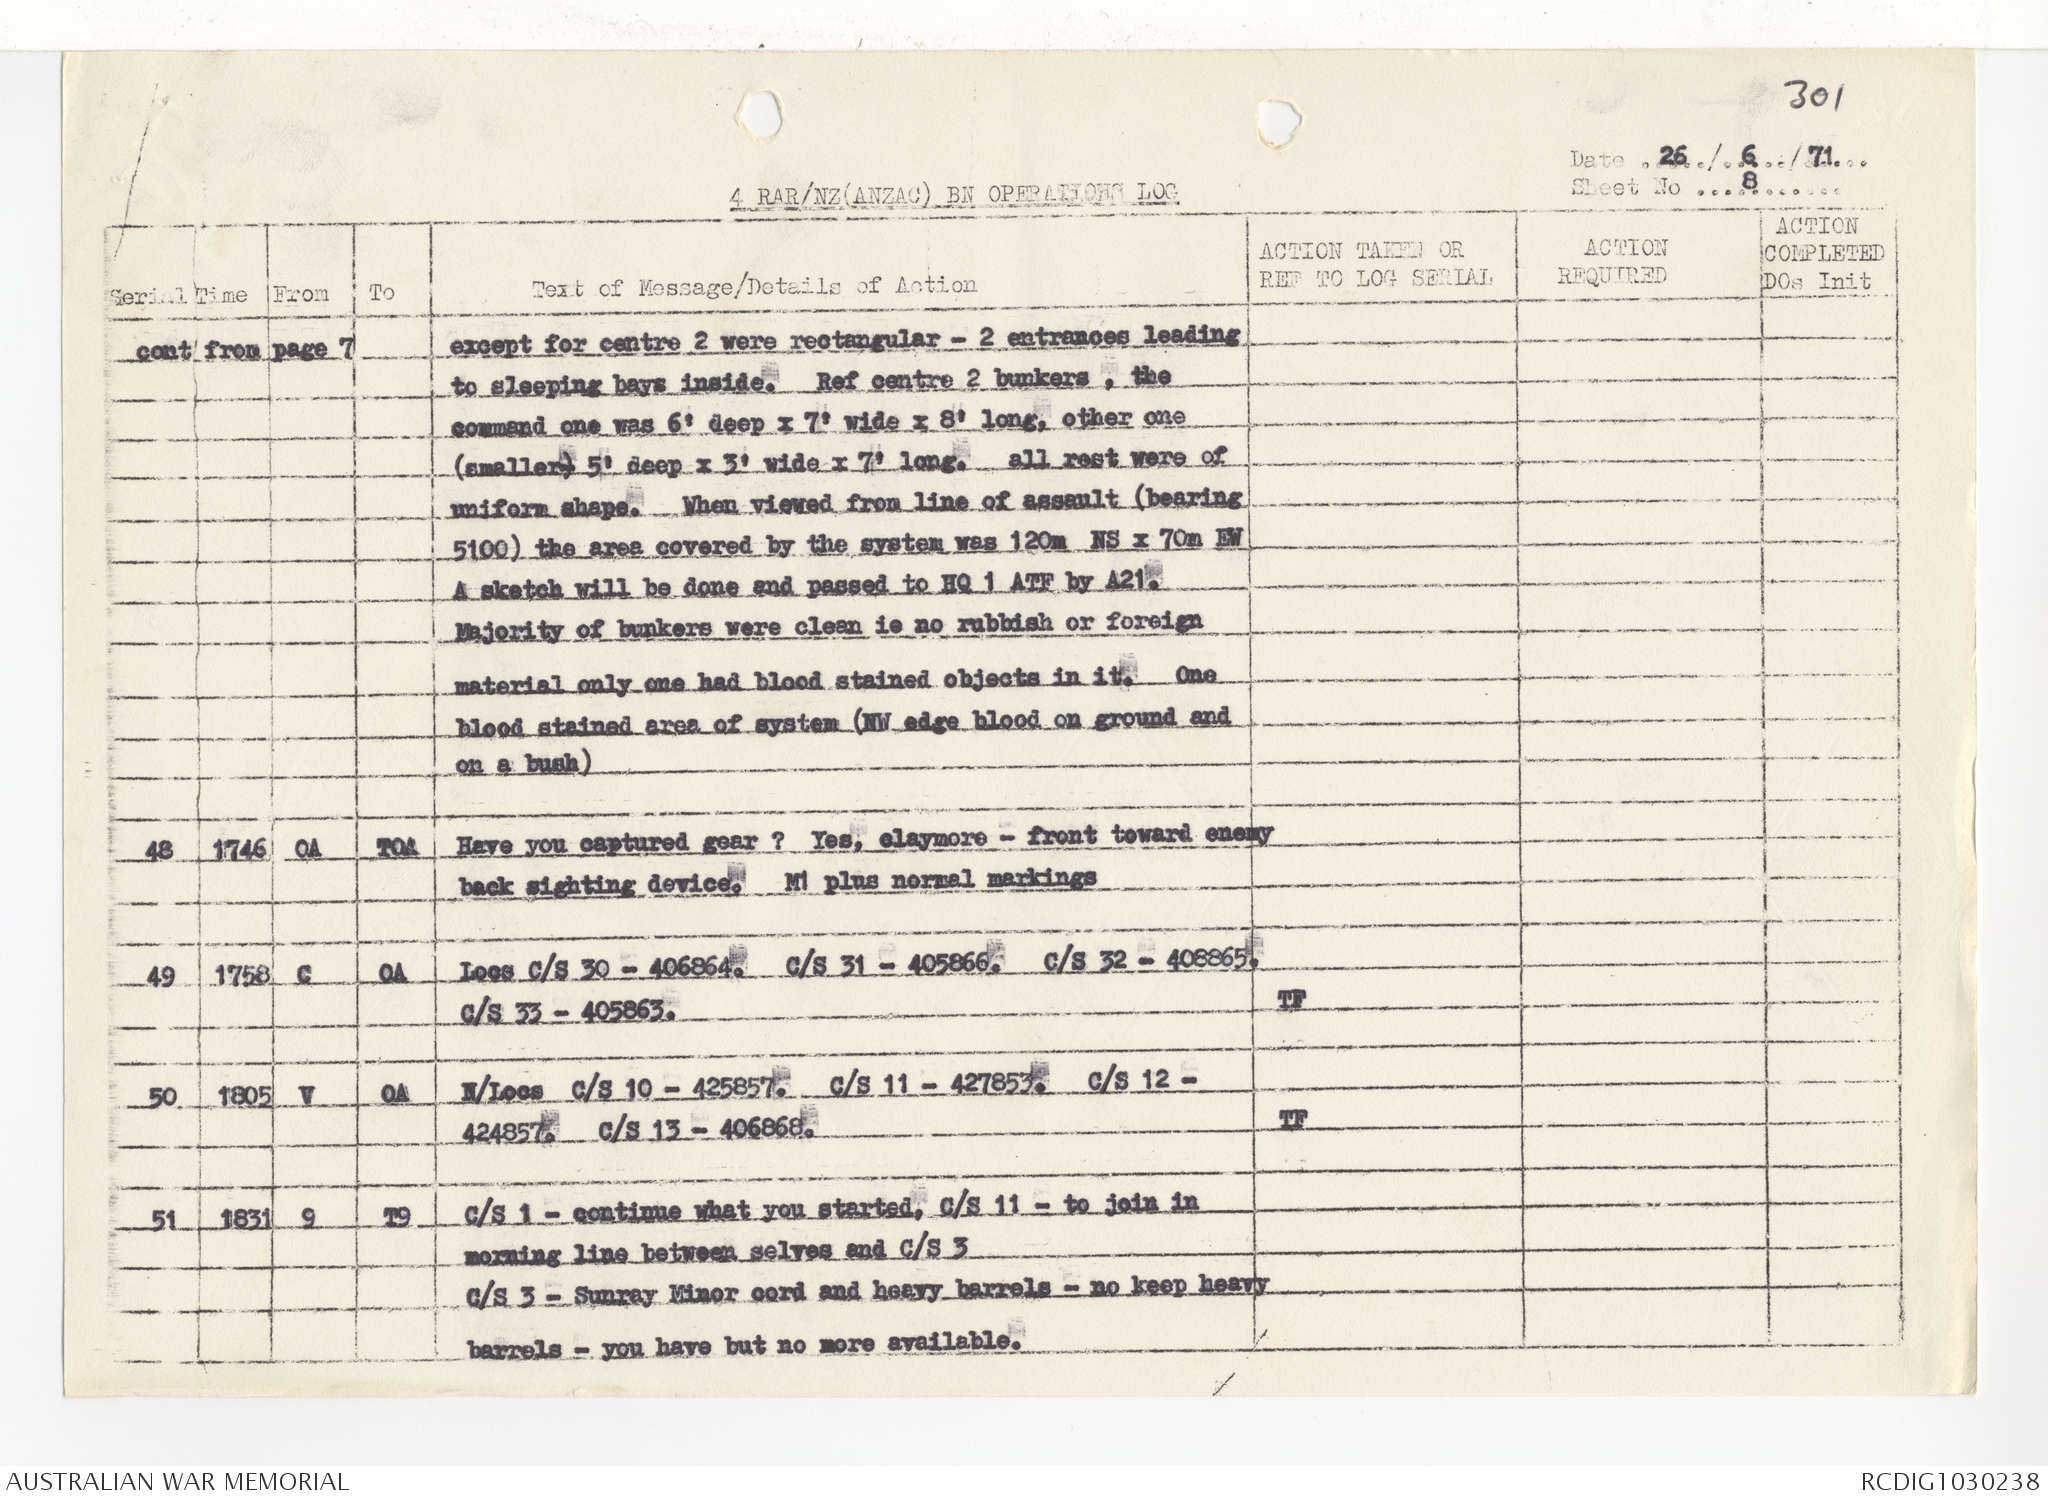 301
Date ..26../..6../..71...
Sheet No ....8..........
4 RAR/NZ(ANZAC) BN OPERATIONS LOG
Serial Time From To Text of Message/Details of Action ACTION TAKEN OR REF TO LOG SERIAL ACTION REQUIRED ACTION COMPLETED DOs Init
cont from page 7 except for centre 2 were rectangular - 2 entrances leading
to sleeping bays inside. Ref centre 2 bunkers , the
command one was 6' deep x 7' wide x 8' long, other one
(smaller) 5' deep x 3' wide x 7' long. all rest were of
uniform shape. When viewed from line of assault (bearing
5100) the area covered by the system was 120m NS x 70m EW
A sketch will be done and passed to HQ 1 ATF by A21.
Majority of bunkers were clean ie no rubbish or foreign
material only one had blood stained objects in it. One
blood stained area of system (NW edge blood on ground and
on a bush)
48 1746 OA TOA Have you captured gear ? Yes, claymore - front toward enemy
back sighting device. M1 plus normal markings
49 1758 C OA Locs C/S 30 - 406864. C/S 31 - 405866. C/S 32 - 408865.
C/S 33 - 405863. TF
50 1805 V OA N/Locs C/S 10 - 425857. C/S 11 - 427853. C/S 12 -
424857. C/S 13 - 406868. TF
51 1831 9 T9 C/S 1 - continue what you started, C/S 11 - to join in
morning line between selves and C/S 3
C/S 3 - Sunray Minor cord and heavy barrels - no keep heavy
barrels - you have but no more available.
AUSTRALIAN WAR MEMORIAL RCDIG1030238